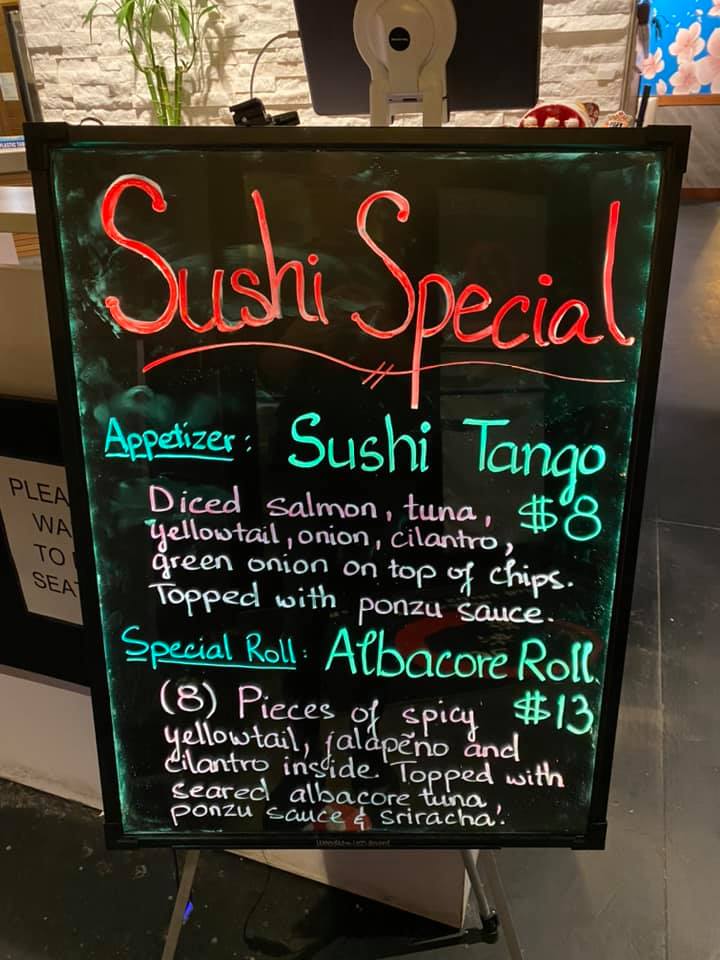 Sushi Special
Appetizer: Sushi Tango
Diced salmon, tuna, $8
yellowtail, onion, cilantro,
green onion on top of chips.
Topped with ponzu sauce.
Special Roll: Albacore Roll
(8) Pieces of spicy $13
yellowtail, jalapeño and
cilantro inside. Topped with
seared albacore tuna,
ponzu sauce & sriracha!
PLEA
WA
TO
SEA